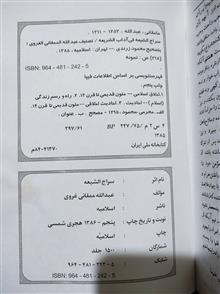 مامقانی، عبدالله، ۱۲۵۲ - ۱۳۱۱
سراج الشیعه فی آداب الشریعه / تصنیف عبدالله الممقانی الغروی؛
بتصحیح محمود زرندی. - تهران: اسلامیه، ۱۳۸۵.
[۳۱۵] ص.: نمونه
ISBN: 964 - 481 - 242 - 5
فهرستنویسی بر اساس اطلاعات فیپا
چاپ پنجم.
۱. اخلاق اسلامی -- متون قدیمی تا قرن ۱۴. ۲. راه و رسم زندگی
(اسلام) -- احادیث. ۳. احادیث اخلاقی -- متون قدیمی تا قرن ۱۴.
الف. محرمی، محمود، ۱۲۹۰ - مصحح. ب. عنوان.
۴ س ۲ م / ۲۴۷/۷۵ BP ۲۹۷/۶۱
۱۳۸۵
کتابخانه ملی ایران ۴۱۳۷۰-۸۴م
نام اثر : سراج الشیعه
مؤلف : عبدالله ممقانی غروی
ناشر : اسلامیه
نوبت و تاریخ چاپ : پنجم - ۱۳۸۶ هجری شمسی
چاپ : اسلامیه
شمارگان : ۱۵۰۰ جلد
شابک : ۵-۲۴۲-۴۸۱-۹۶۴
ISBN: 964 - 481 - 242 - 5